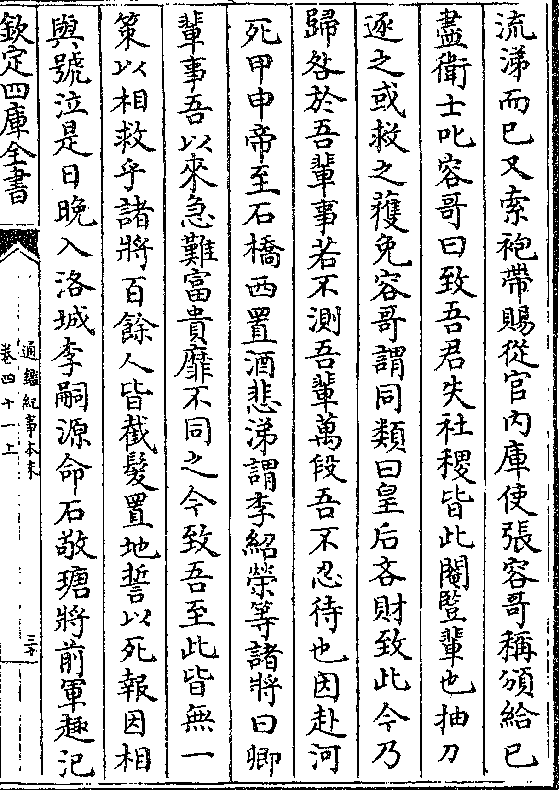 流涕而已又索袍帶賜從官内庫使張容哥稱頒給已
盡衛士叱容哥曰致吾君失社稷皆此閹豎輩也抽刀
逐之或救之獲免容哥謂同類曰皇后吝財致此今乃
歸咎於吾輩事若不測吾輩萬段吾不忍待也因赴河
死甲申帝至石橋西置酒悲涕謂李紹榮等諸將曰卿
輩事吾以來急難富貴靡不同之今致吾至此皆無一
策以相救乎諸將百餘人皆截髮置地誓以死報因相
與號泣是日晚入洛城李嗣源命石敬瑭將前軍趣汜
欽定四庫全書
通鑑紀事本末
卷四十一上
三十